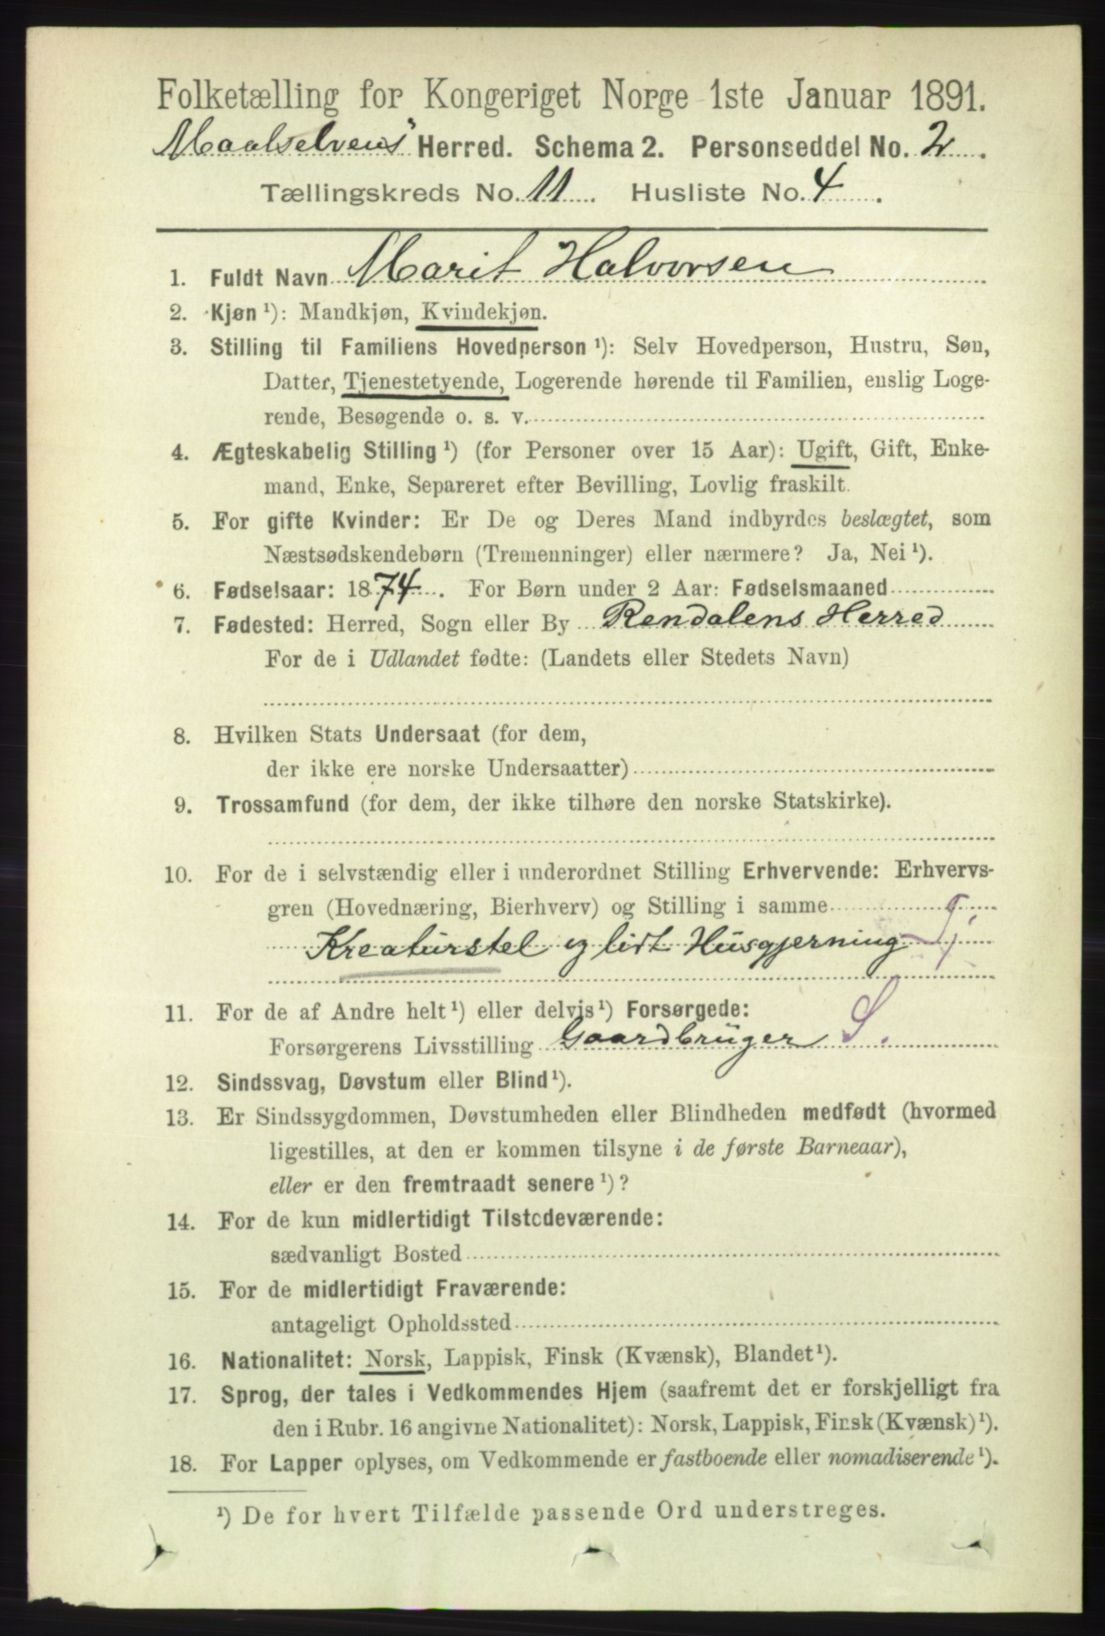 Folketælling for Kongeriget Norge 1ste Januar 1891.
Maalselvens Herred. Schema 2. Personseddel No. 2.
Tællingskreds No. 11. Husliste No. 4.
1. Fuldt Navn Marit Halvorsen
2. Kjøn ¹): Mandkjøn, Kvindekjøn.
3. Stilling til Familiens Hovedperson ¹): Selv Hovedperson, Hustru, Søn,
Datter, Tjenestetyende, Logerende hørende til Familien, enslig Loge-
rende, Besøgende o. s. v.
4. Ægteskabelig Stilling ¹) (for Personer over 15 Aar): Ugift, Gift, Enke-
mand, Enke, Separeret efter Bevilling, Lovlig fraskilt.
5. For gifte Kvinder: Er De og Deres Mand indbyrdes beslægtet, som
Næstsødskendebørn (Tremenninger) eller nærmere? Ja, Nei ¹).
6. Fødselsaar: 1874. For Børn under 2 Aar: Fødselsmaaned
7. Fødested: Herred, Sogn eller By Rendalens Herred
For de i Udlandet fødte: (Landets eller Stedets Navn)
8. Hvilken Stats Undersaat (for dem,
der ikke ere norske Undersaatter)
9. Trossamfund (for dem, der ikke tilhøre den norske Statskirke).
10. For de i selvstændig eller i underordnet Stilling Erhvervende: Erhvervs-
gren (Hovednæring, Bierhverv) og Stilling i samme
Kreaturstel og lidt Husgjerning Tj
11. For de af Andre helt ¹) eller delvis ¹) Forsørgede:
Forsørgerens Livsstilling Gaardbruger S.
12. Sindssvag, Døvstum eller Blind ¹).
13. Er Sindssygdommen, Døvstumheden eller Blindheden medfødt (hvormed
ligestilles, at den er kommen tilsyne i de første Barneaar),
eller er den fremtraadt senere ¹)?
14. For de kun midlertidigt Tilstedeværende:
sædvanligt Bosted
15. For de midlertidigt Fraværende:
antageligt Opholdssted
16. Nationalitet: Norsk, Lappisk, Finsk (Kvænsk), Blandet ¹).
17. Sprog, der tales i Vedkommendes Hjem (saafremt det er forskjelligt fra
den i Rubr. 16 angivne Nationalitet): Norsk, Lappisk, Finsk (Kvænsk) ¹).
18. For Lapper oplyses, om Vedkommende er fastboende eller nomadiserende ¹).
¹) De for hvert Tilfælde passende Ord understreges.